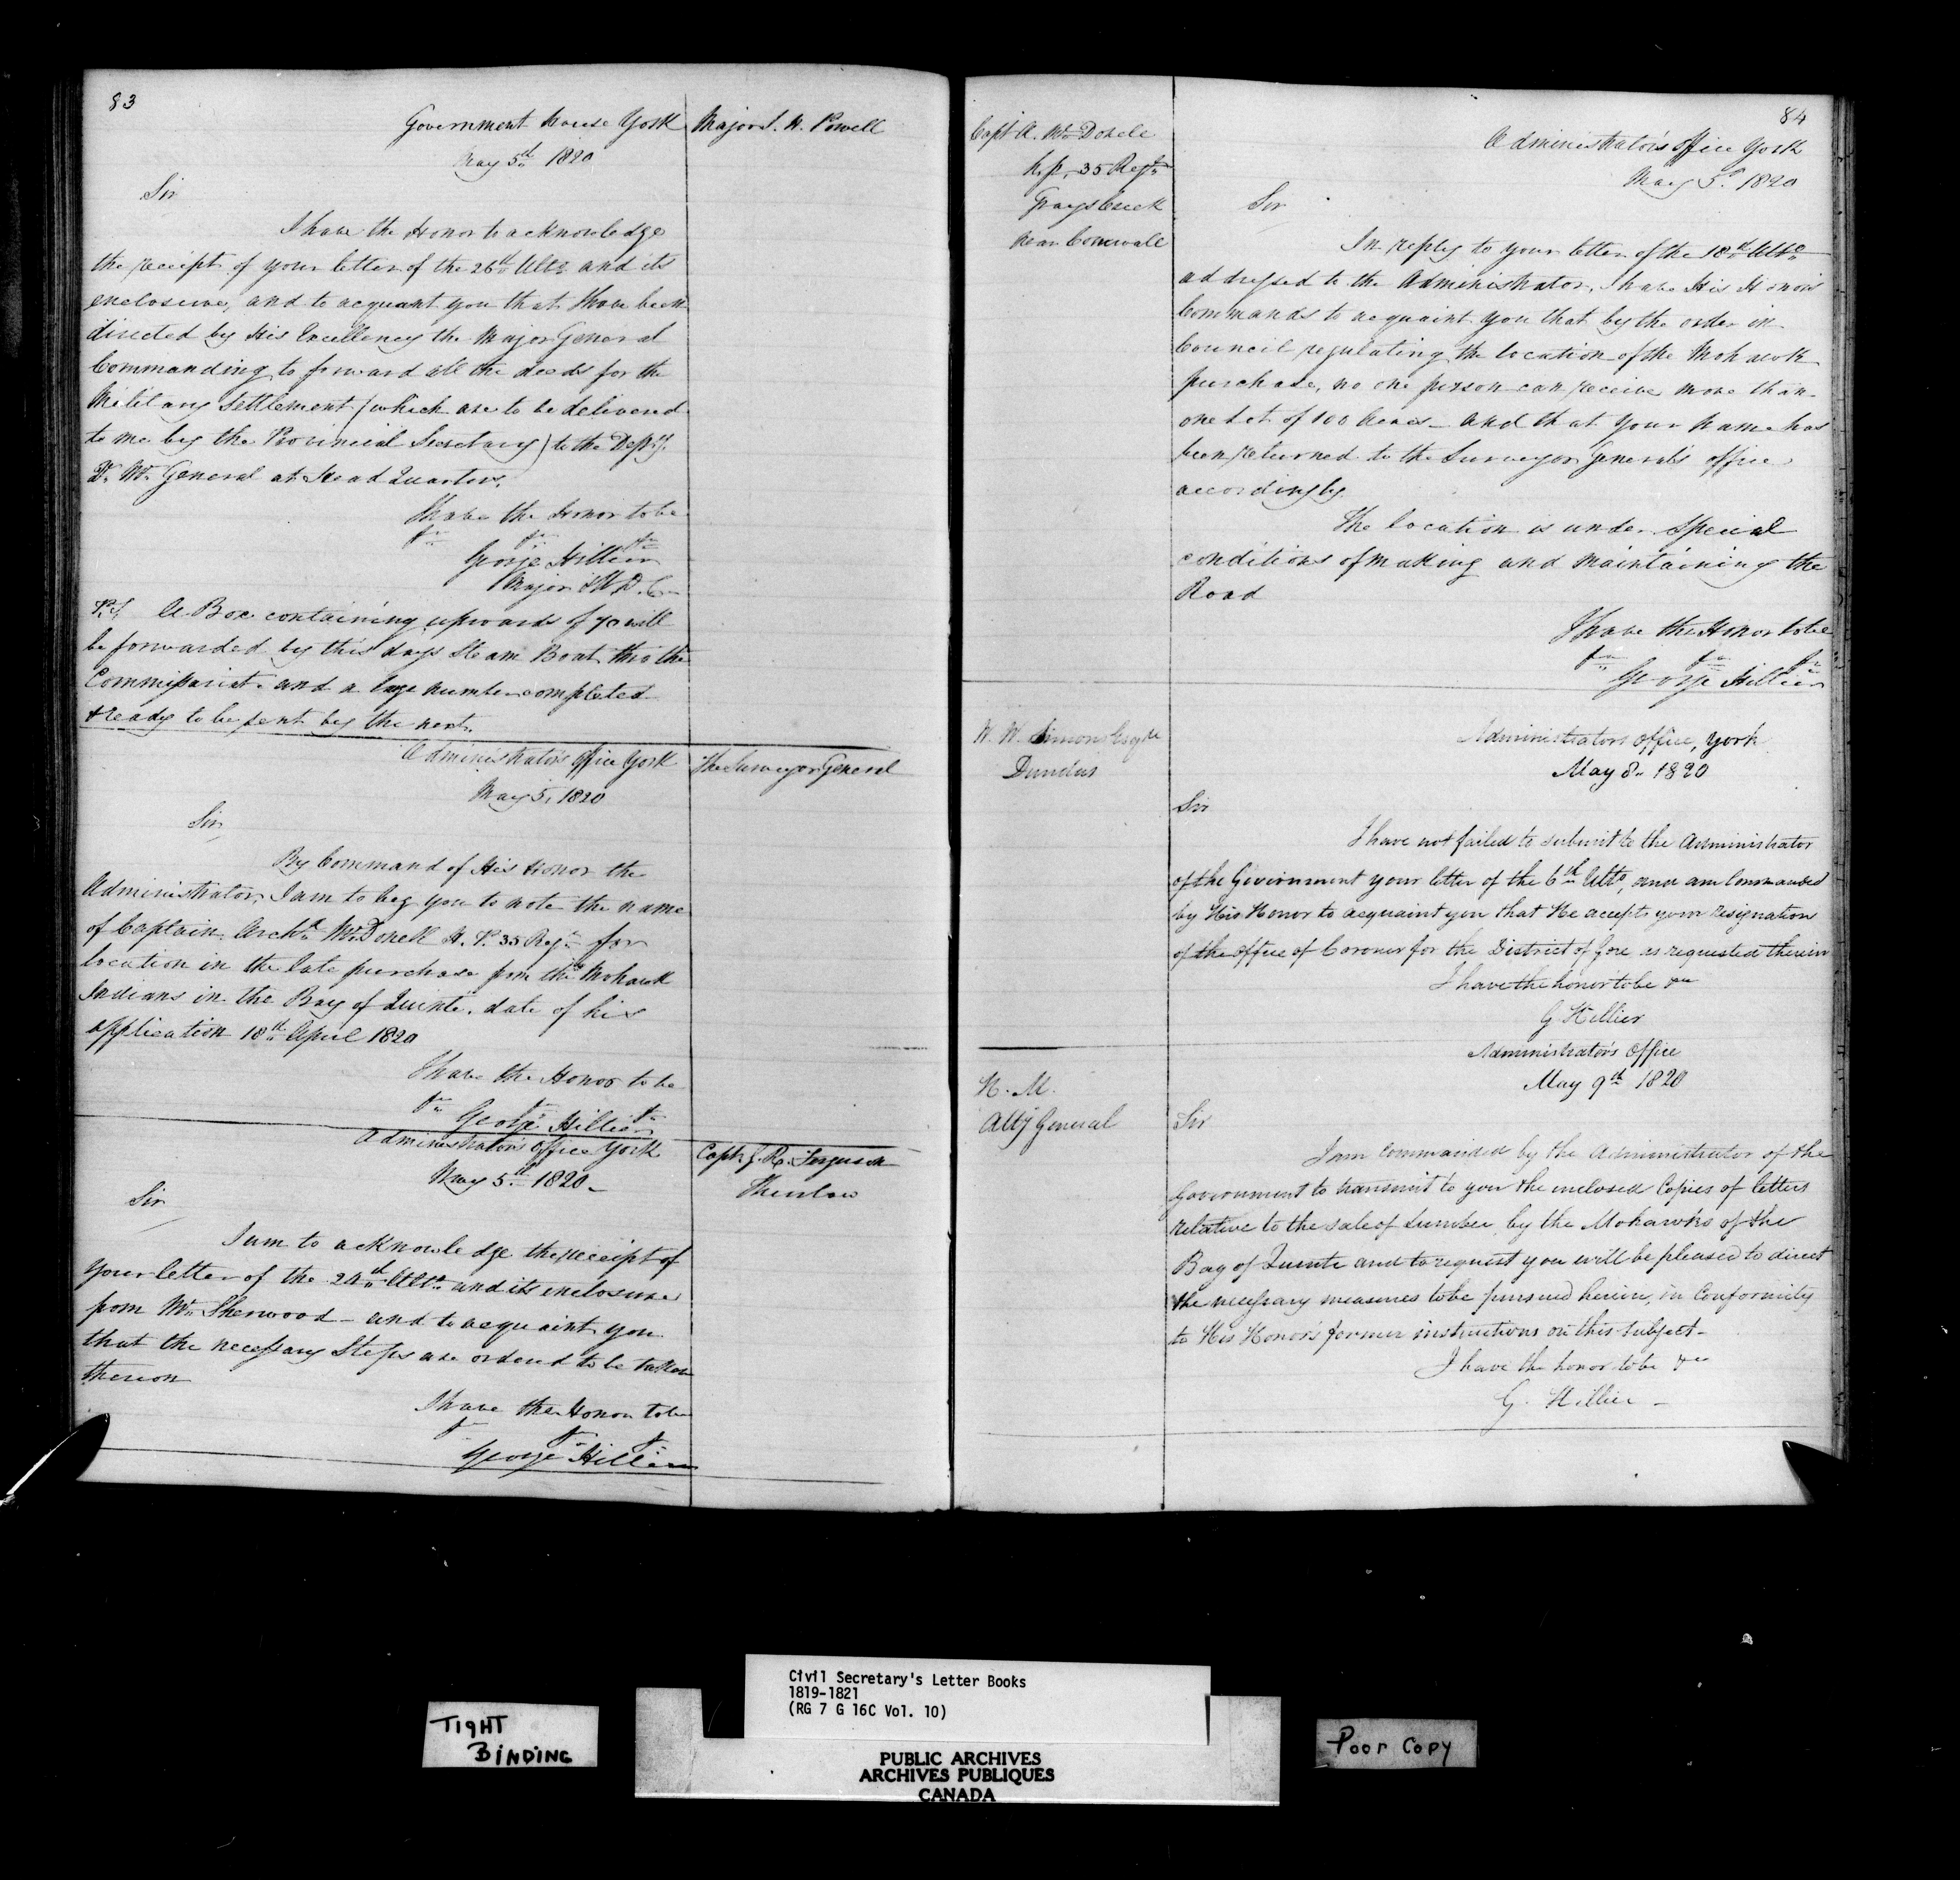 83
Government House York
May 5th 1820
Major S. N. Powell
Sir
I have the Honor to acknowledge
the receipt of your letter of the 26th Ulto and its
enclosure, and to acquaint you that I have been
directed by His Excellency the Major General
Commanding to forward all the deeds for the
Military Settlement (which are to be delivered
to me by the Provincial Secretary) to the Depy.
Qr. Mr. General at Head Quarters.
I have the Honor to be
&c &c &c
George Hillier
Major & A. D. C.
P.S. A Box containing upwards of 70 will
be forwarded by this days Steam Boat thro the
Commissariat. and a large number completed
& ready to be sent by the next.
Administrators Office York
May 5. 1820
The Surveyor General
Sir
By Command of His Honor the
Administrator, I am to beg you to note the name
of Captain Archd McDonell H. P. 35 Regt for
location in the late purchase from the Mohawk
Indians in the Bay of Quinte. date of his
application 18th April 1820
I have the Honor to be
&c &c &c
George Hillier
Administrators Office York
May 5th 1820
Capt. J. R. Ferguson
Thurlow
Sir
I am to acknowledge the receipt of
your letter of the 24th Ulto and its enclosure
from Mr. Sherwood - and to acquaint you
that the necessary Steps are ordered to be taken
thereon
I have the Honor to be
&c &c &c
George Hillier
84
Capt A. McDonell
h. p. 35 Regt
Grays Creek
near Cornwall
Administrators Office York
May 5th 1820
Sir
In reply to your letter of the 18th Ulto
addressed to the Administrator, I have His Honors
Commands to acquaint you that by the order in
Council regulating the location of the Mohawk
purchase, no one person can receive more than
one Lot of 100 Acres - and that your name has
been returned to the Surveyor General's office
accordingly
The location is under special
conditions of making and maintaining the
Road
I have the Honor to be
&c &c &c
George Hillier
W. W. Simons Esqre
Dundas
Administrators Office, York
May 8. 1820
Sir
I have not failed to submit to the Administrator
of the Government your letter of the 6th Ulto, and am Commanded
by His Honor to acquaint you that He accepts your resignation
of the office of Coroner for the District of Gore as requested therein
I have the honor to be &c
G Hillier
H. M.
Atty General
Administrators Office
May 9th 1820
Sir
I am commanded by the Administrator of the
Government to transmit to you the inclosed Copies of letters
relative to the sale of Lumber by the Mohawks of the
Bay of Quinte and to request you will be pleased to direct
the necessary measures to be pursued herein, in Conformity
to His Honor's former instructions on this subject -
I have the honor to be &c
G. Hillier -
TIGHT
BINDING
Civil Secretary's Letter Books
1819-1821
(RG 7 G 16C Vol. 10)
PUBLIC ARCHIVES
ARCHIVES PUBLIQUES
CANADA
Poor Copy